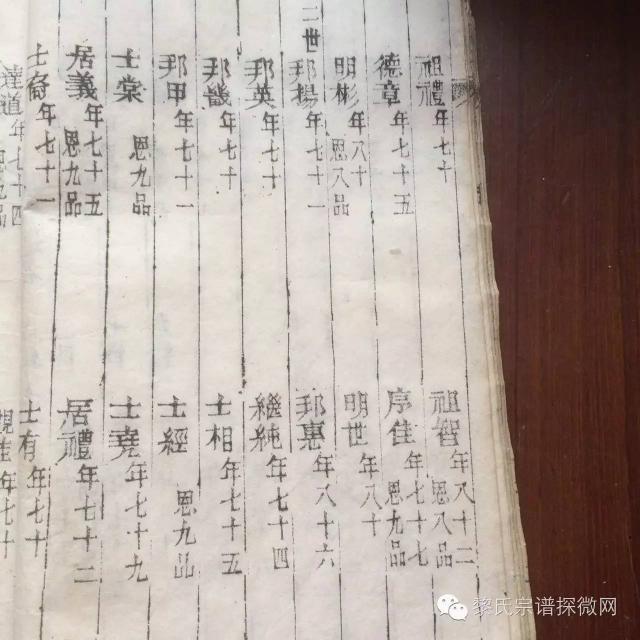 祖禮年七十
德章年七十五
明彬年八十恩八品
三世
邦揚年七十一
邦英年七十
邦彀年七十
邦甲年七十一
士棠恩九品
居義年七十五恩九品
士裔年七十一
達道年
祖智年八十二恩八品
序佳年七十七恩九品
明世年八十
邦惠年八十六
繼純年七十四
士相年七十五
士經恩九品
士堯年七十九
居禮年七十二
士有年七十
年七十
黎氏宗谱探微网